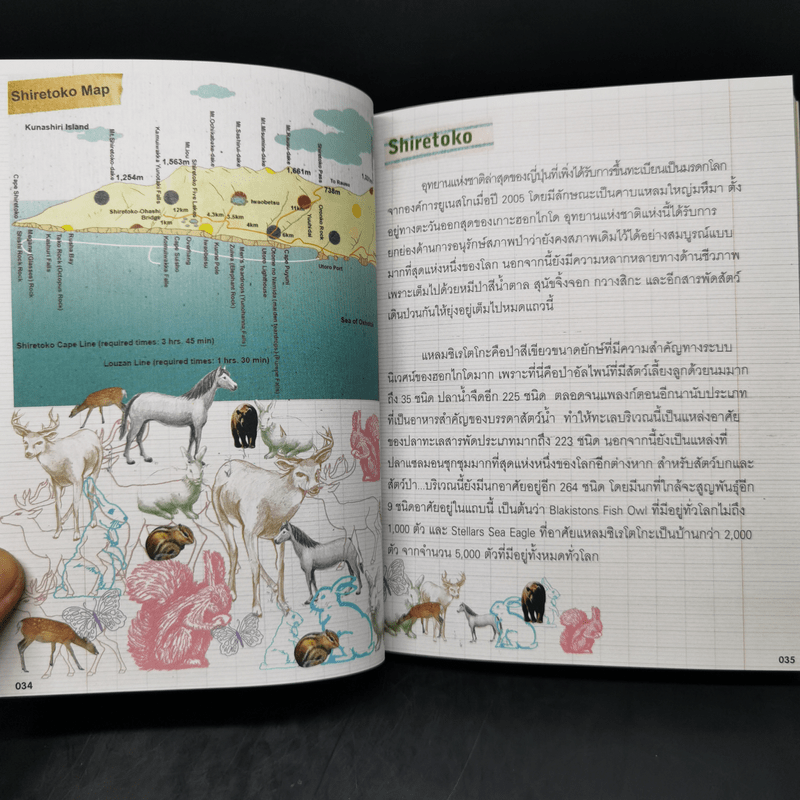 Shiretoko Map
Kunashiri Island
Mt.Shiretoko-dake
1,254m
Kamuiwakka Yunotaki Falls
Mt.Iou
1,563m
Shiretoko Five Lakes
Mt.Ochikabake-dake
Mt.Sashirui-dake
Mt.Mitsumine-dake
Mt.Rausu-dake
1,661m
Shiretoko Pass
738m
To Rausu
Cape Shiretoko
Shiretoko-Ohashi
Bridge
12km
1km
4.3km
3.5km
4km
Iwaobetsu
11km
6km
Oronko Rock
Utoro Port
Megane (Glasses) Rock
Kashuni Falls
Tako Rock (Octopus Rock)
Rusha Bay
Kamuiwakka Falls
Cape Suraho
Overhang
Iwaobetsu
Kunne Pole
Zoiwa (Elephant Rock)
Man's Teardrops (Yunohana Falls)
Utoro Lighthouse
Cape Puyuni
Sea of Okhotsk
Shiretoko Cape Line (required times: 3 hrs. 45 min)
Louzan Line (required times: 1 hrs. 30 min)
034
Shiretoko
อุทยานแห่งชาติล่าสุดของญี่ปุ่นที่เพิ่งได้รับการขึ้นทะเบียนเป็นมรดกโลก
จากองค์การยูเนสโกเมื่อปี 2005 โดยมีลักษณะเป็นคาบแหลมใหญ่มหึมา ตั้ง
อยู่ทางตะวันออกสุดของเกาะฮอกไกโด อุทยานแห่งชาติแห่งนี้ได้รับการ
ยกย่องด้านการอนุรักษ์สภาพป่าว่ายังคงสภาพเดิมไว้ได้อย่างสมบูรณ์แบบ
มากที่สุดแห่งหนึ่งของโลก นอกจากนี้ยังมีความหลากหลายทางด้านชีวภาพ
เพราะเต็มไปด้วยหมีป่าสีน้ำตาล สุนัขจิ้งจอก กวางสิกะ และอีกสารพัดสัตว์
เดินป้วนกันให้ยุ่งอยู่เต็มไปหมดแถวนี้
แหลมชิเรโตโกะคือป่าสีเขียวขนาดยักษ์ที่มีความสำคัญทางระบบ
นิเวศน์ของฮอกไกโดมาก เพราะที่นี่คือป่าอัลไพน์ที่มีสัตว์เลี้ยงลูกด้วยนมมาก
ถึง 35 ชนิด ปลาน้ำจืดอีก 225 ชนิด ตลอดจนแพลงก์ตอนอีกนานับประเภท
ที่เป็นอาหารสำคัญของบรรดาสัตว์น้ำ ทำให้ทะเลบริเวณนี้เป็นแหล่งอาศัย
ของปลาทะเลสารพัดประเภทมากถึง 223 ชนิด นอกจากนี้ยังเป็นแหล่งที่
ปลาแซลมอนชุกชุมมากที่สุดแห่งหนึ่งของโลกอีกต่างหาก สำหรับสัตว์บกและ
สัตว์ป่า...บริเวณนี้ยังมีนกอาศัยอยู่อีก 264 ชนิด โดยมีนกที่ใกล้จะสูญพันธุ์อีก
9 ชนิดอาศัยอยู่ในแถบนี้ เป็นต้นว่า Blakistons Fish Owl ที่มีอยู่ทั่วโลกไม่ถึง
1,000 ตัว และ Stellars Sea Eagle ที่อาศัยแหลมชิเรโตโกะเป็นบ้านกว่า 2,000
ตัว จากจำนวน 5,000 ตัวที่มีอยู่ทั้งหมดทั่วโลก
035